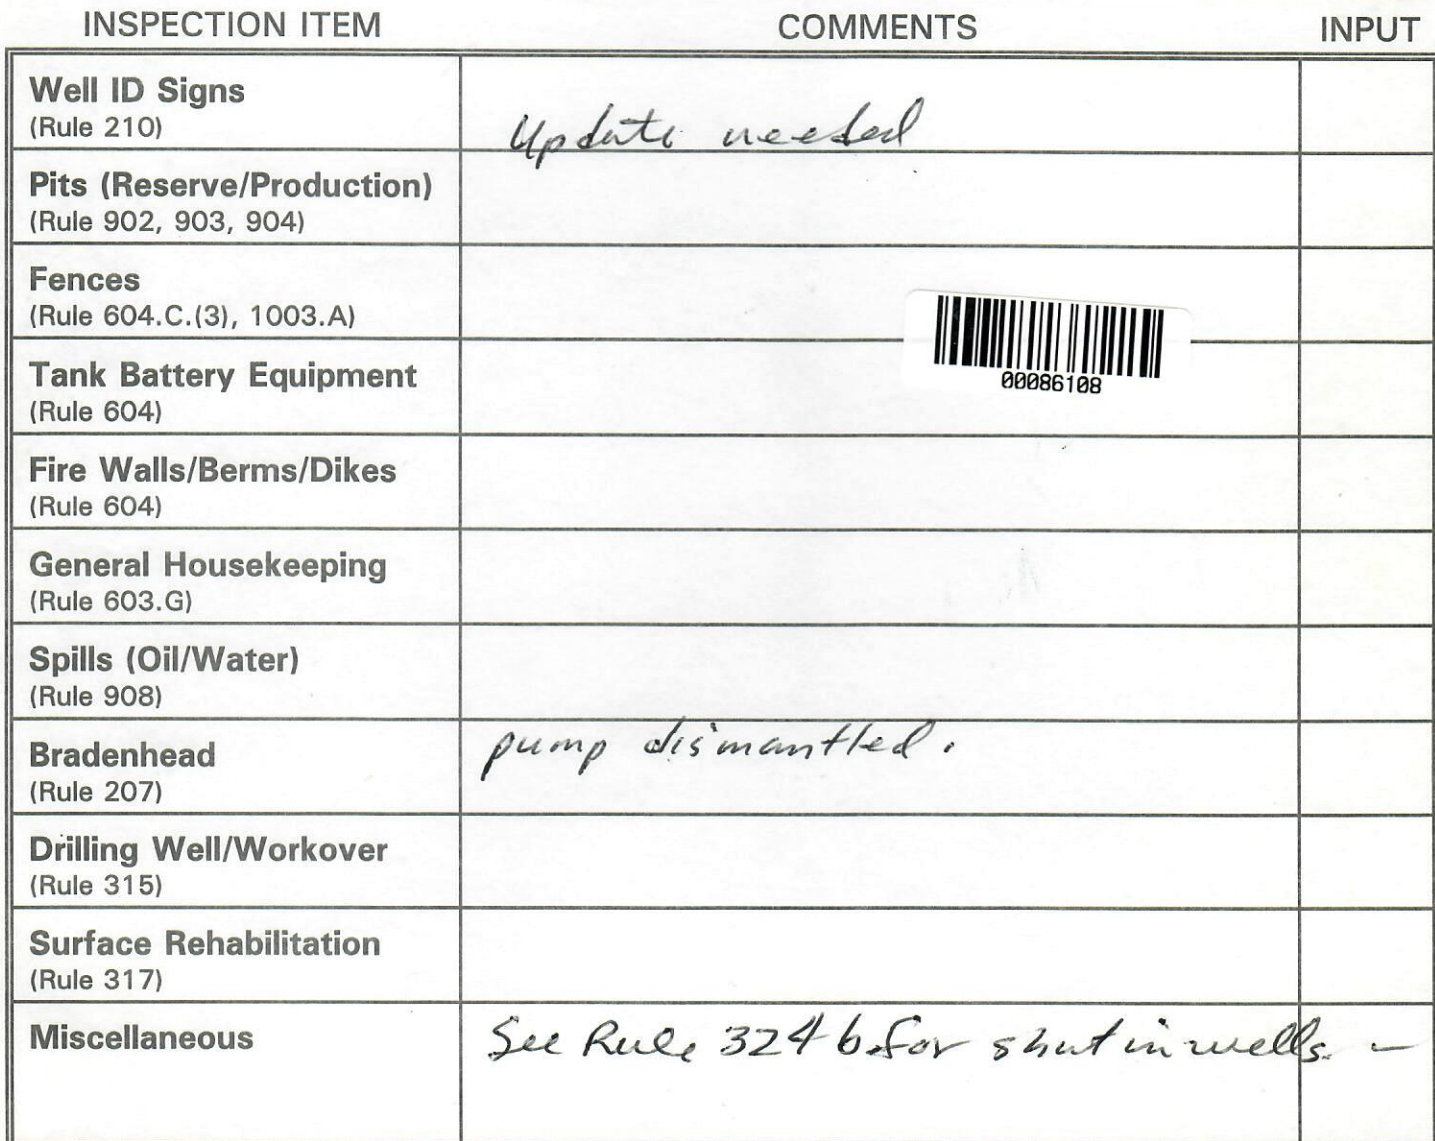 INSPECTION ITEM COMMENTS INPUT
Well ID Signs
(Rule 210)
Update needed
Pits (Reserve/Production)
(Rule 902, 903, 904)
Fences
(Rule 604.C.(3), 1003.A)
00086108
Tank Battery Equipment
(Rule 604)
Fire Walls/Berms/Dikes
(Rule 604)
General Housekeeping
(Rule 603.G)
Spills (Oil/Water)
(Rule 908)
Bradenhead
(Rule 207)
pump dismantled.
Drilling Well/Workover
(Rule 315)
Surface Rehabilitation
(Rule 317)
Miscellaneous
See Rule 324 b for shut in wells -